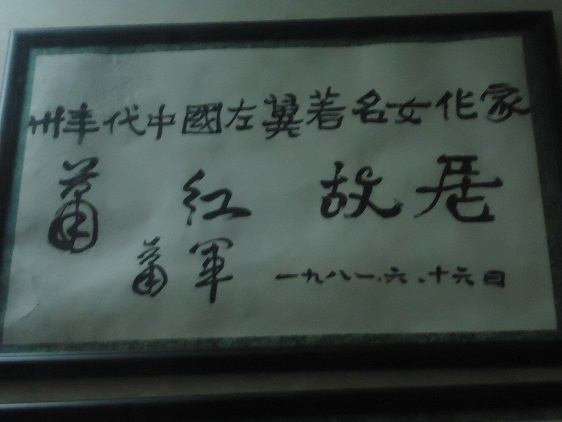 卅年代中國左翼著名女作家
蕭紅故居
蕭軍 一九八一.六.十六日